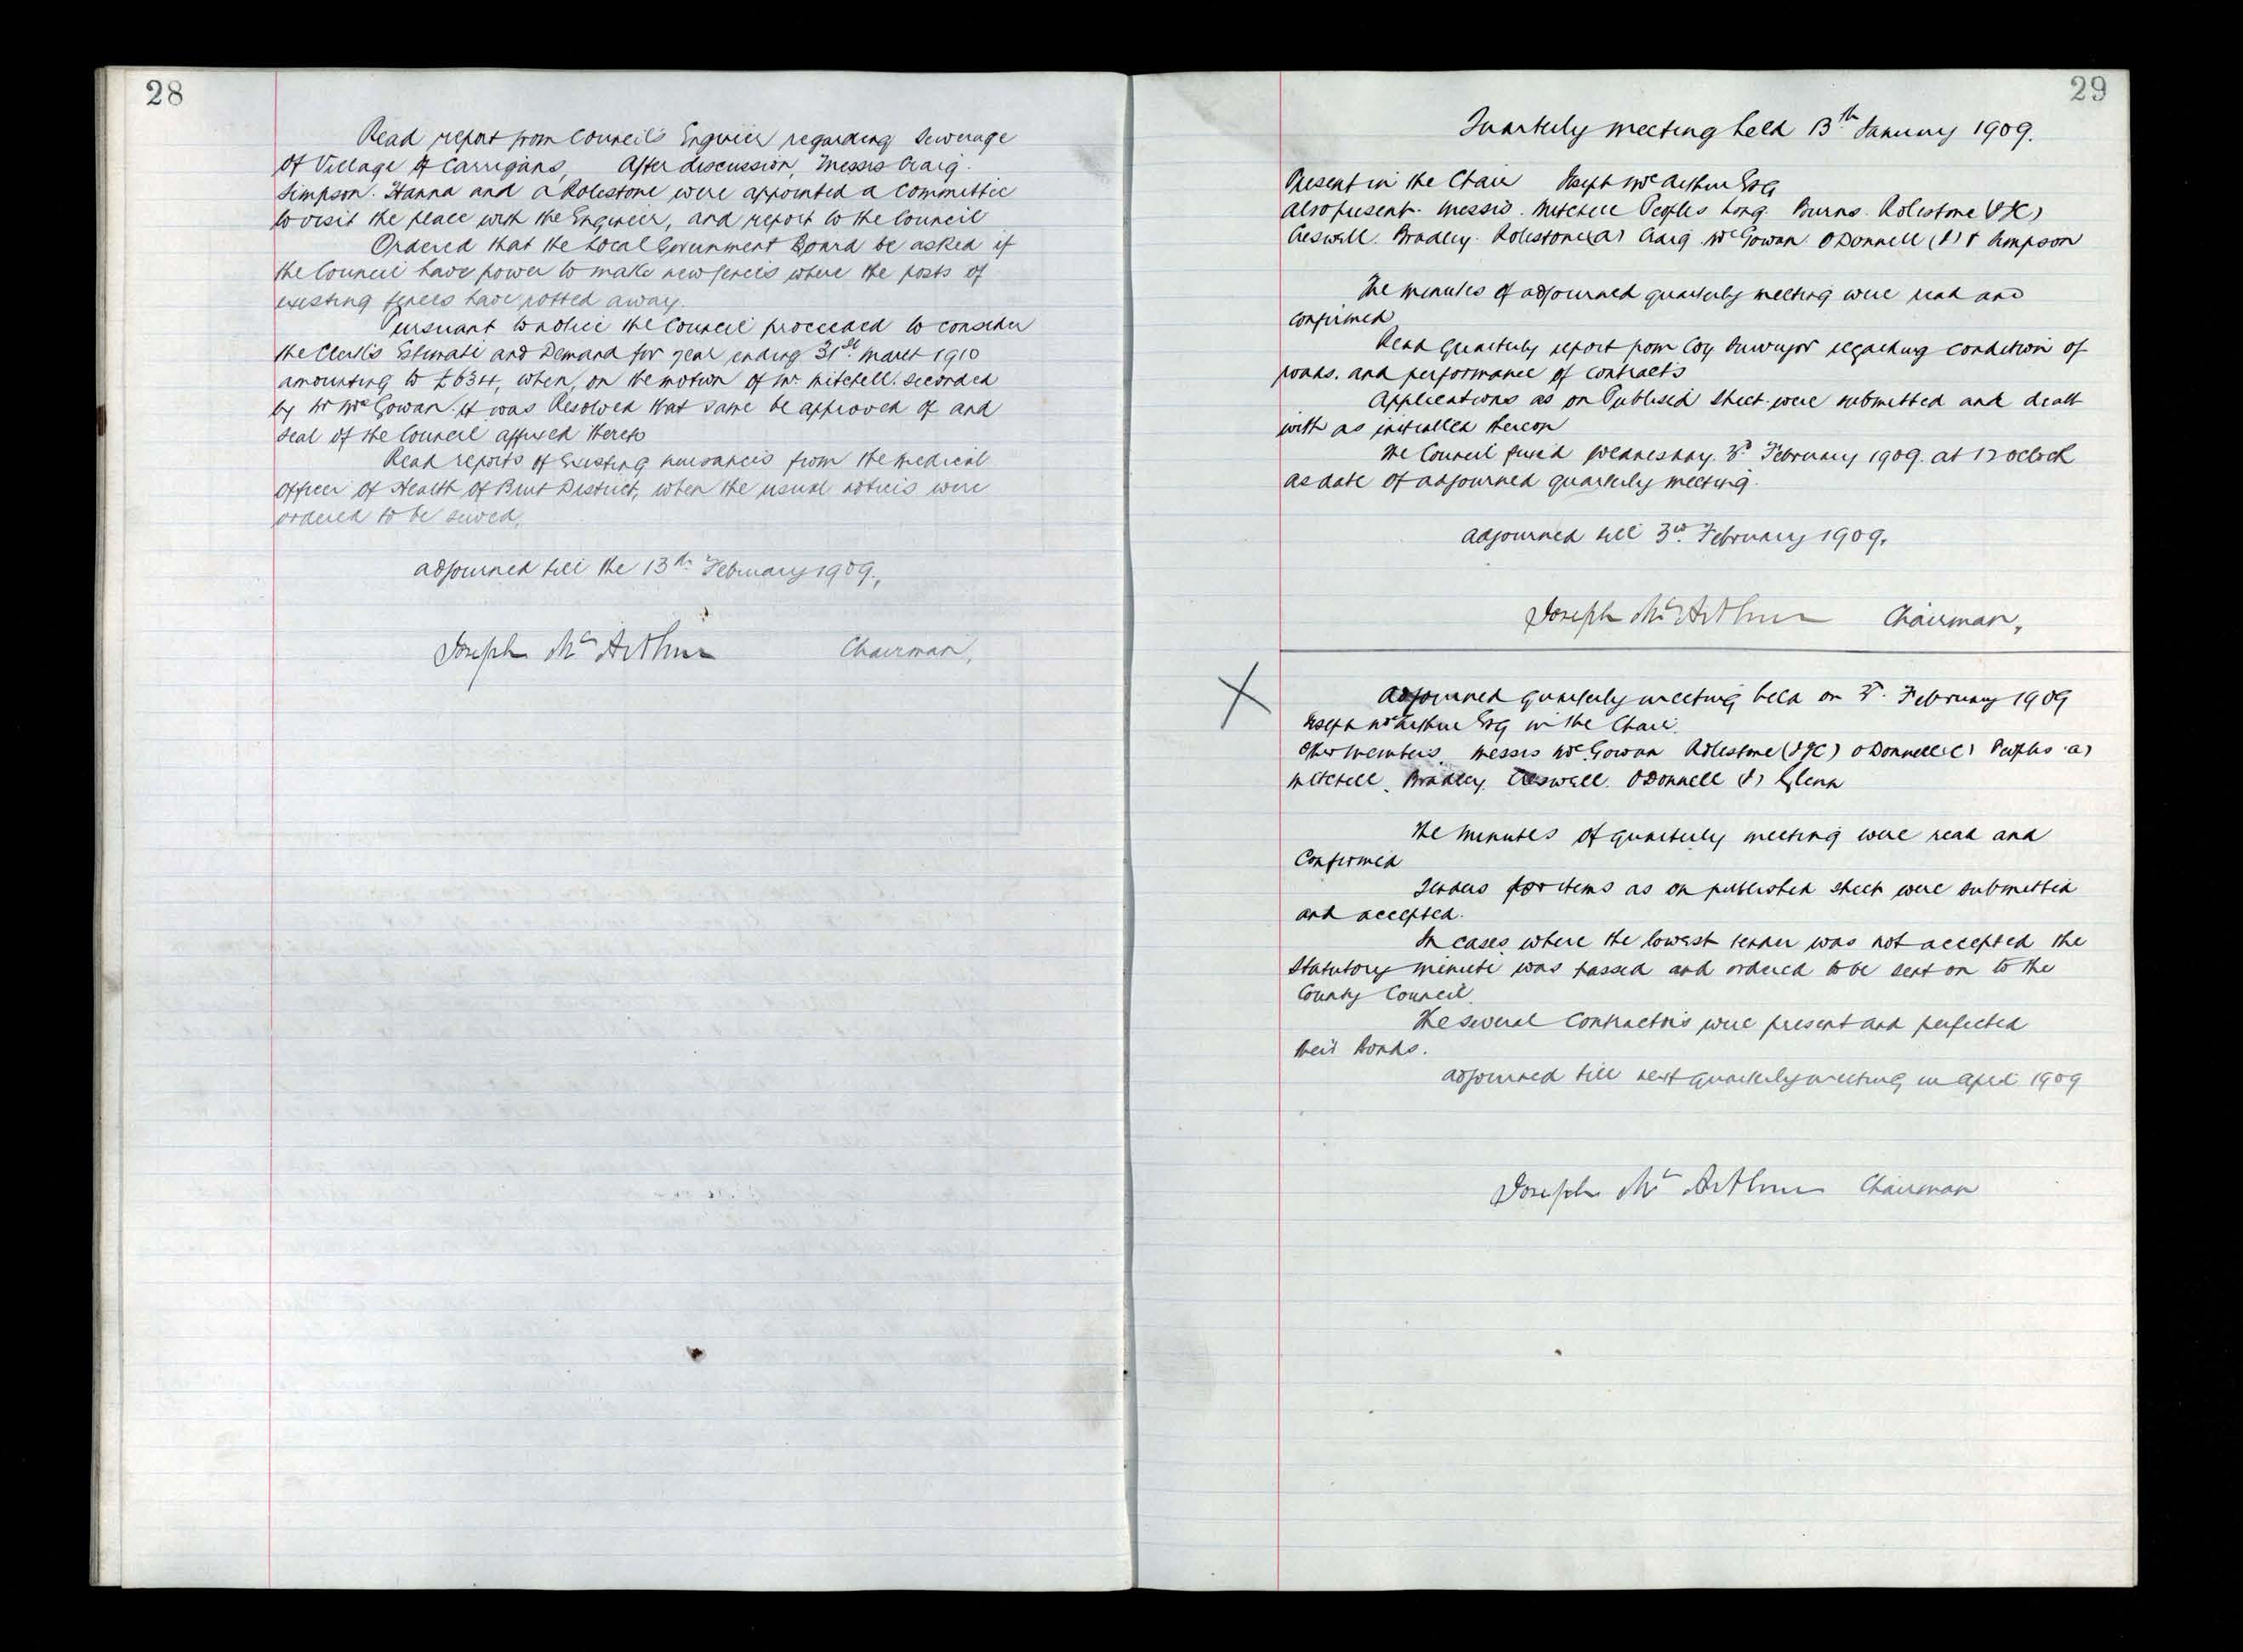 28
Read report from Council's Engineer regarding Sewerage
of Village of Carrigans, After discussion, Messrs Craig.
Simpson. Hanna and A Rolestone were appointed a Committee
to visit the place with the Engineer, and report to the Council
Ordered that the Local Government Board be asked if
the Council have power to make new fences where the posts of
existing fences have rotted away.
Pursuant to notice the Council proceeded to consider
the Clerk's Estimate and Demand for year ending 31st March 1910
amounting to £634, when, on the motion of Mr Mitchell. Seconded
by Mr McGowan it was Resolved that same be approved of and
Seal of the Council affixed thereto
Read reports of Existing nuisances from the Medical
Officer of Health of Burt District, when the usual notices were
ordered to be served.
Adjourned till the 13th February 1909.,
Joseph McArthur Chairman,
29
Quarterly meeting held 13th January 1909.
Present in the Chair Joseph McArthur Esq
Also present. Messrs. Mitchell Peoples Long. Burns. Rolestone
Creswell. Bradley. Rolestone (A) Craig McGowan ODonnell (J) & Simpson
The minutes of adjourned quarterly meeting were read and
confirmed
Read quarterly report from Coy Surveyor regarding condition of
roads. and performance of contracts
Applications as on Published sheet were submitted and dealt
with as initialled thereon
The Council fixed Wednesday. 3rd February 1909. at 12 oclock
as date of adjourned quarterly meeting.
Adjourned till 3rd February 1909.
Joseph McArthur Chairman,
X
Adjourned quarterly meeting held on 3rd. February 1909
Joseph McArthur Esq in the Chair.
Other members. Messrs McGowan Rolestone ODonnell (C) Peoples (A)
Mitchell. Bradley. Creswell. ODonnell (J) Glenn
The minutes of quarterly meeting were read and
Confirmed
Tenders for items as on published sheet were submitted
and accepted.
In cases where the lowest tender was not accepted the
Statutory minute was passed and ordered to be sent on to the
County Council.
The several Contractors were present and perfected
their Bonds.
Adjourned till next quarterly meeting in April 1909
Joseph McArthur Chairman